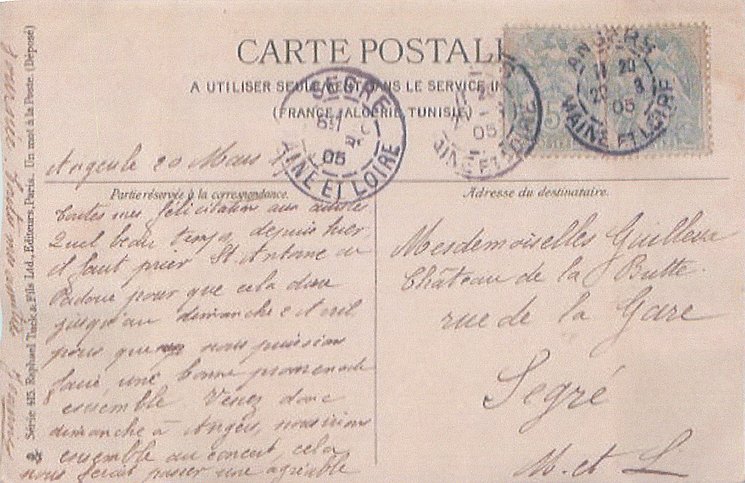 CARTE POSTALE
A UTILISER SEULEMENT DANS LE SERVICE IN
(FRANCE, ALGÉRIE, TUNISIE)
SEGRÉ
05
MAINE ET LOIRE
05
MAINE ET LOIRE
ANGERS
20
05
MAINE ET LOIRE
20 Mars
Partie réservée à la correspondance.
Adresse du destinataire.
Toutes mes félicitation aux
Quel beau temps, depuis hier
il faut prier St Antoine de
Padoue pour que cela dure
jusqu'au dimanche 2 Avril
pour que nous puissions
faire une bonne promenade
ensemble Venez donc
dimanche à Angers, nous irions
ensemble au concert, cela
nous ferait passer une agréable
Mesdemoiselles Guilleux
Château de la Butte.
rue de la Gare
Segré
M. et L
Série 415. Raphael Tuck & Fils Ltd., Editeurs, Paris. Un mot à la Poste. (Déposé)